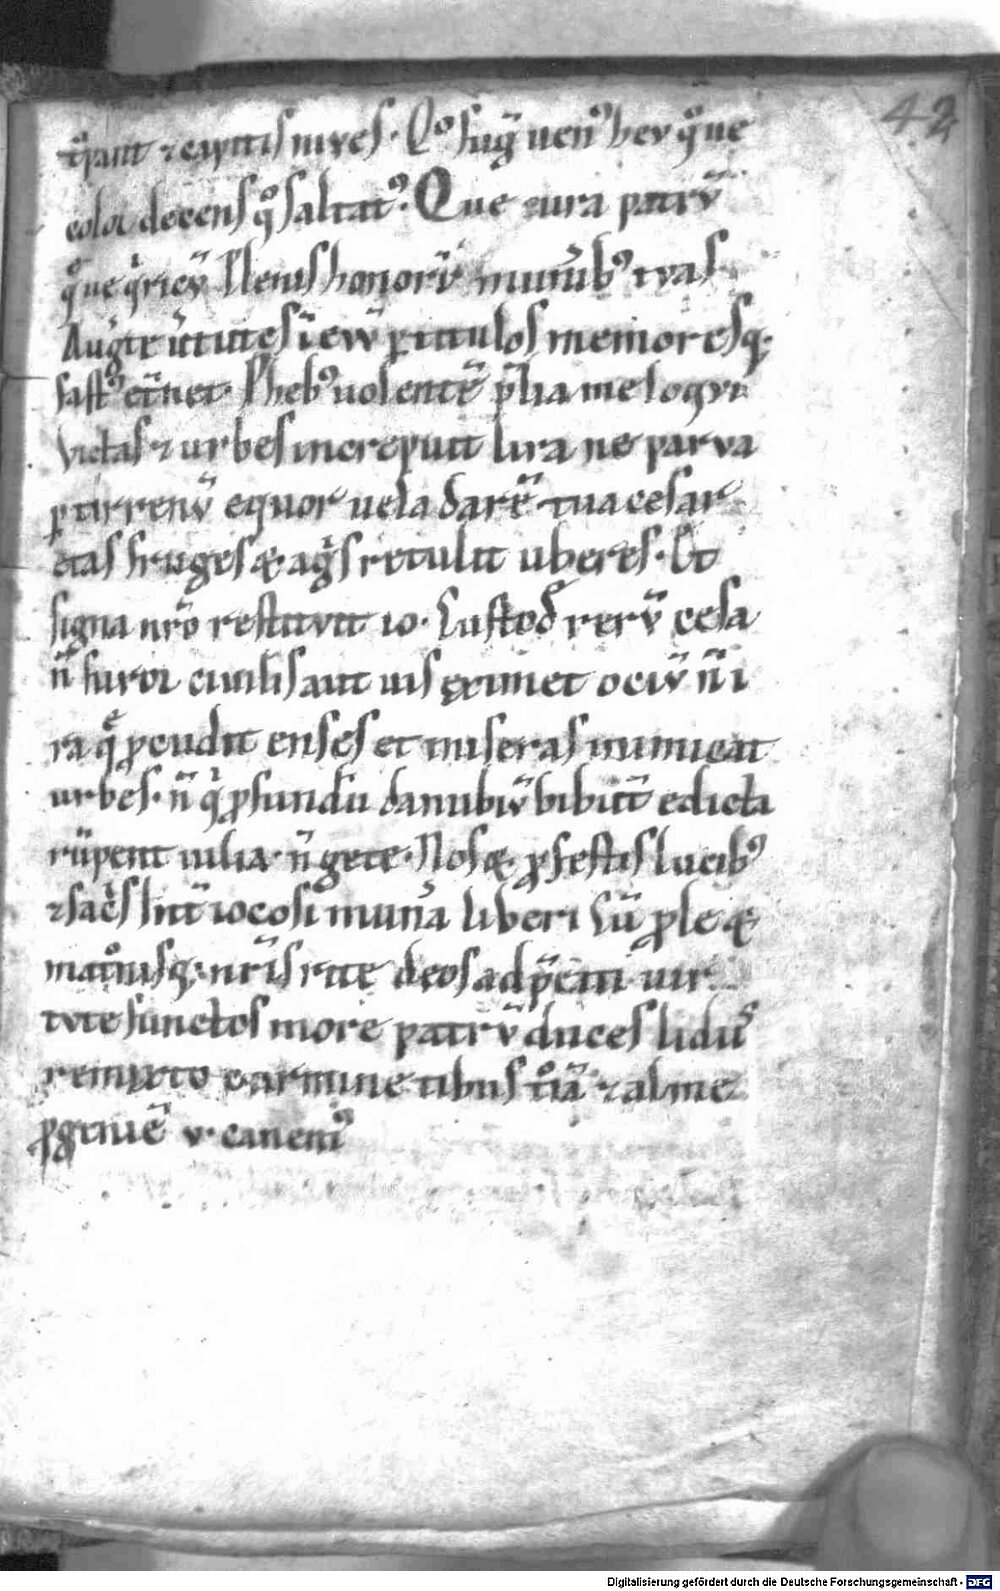 42
t͛pant ⁊ capitis niues. Qͦ fug̅ uenꝰ heu qͦue
color decens qͦ saltatꝰ. Que cura patrū
qͦue qͥricū Plenis honorū munīb᷒ tuas
Aug̅te ūtutes ī euū ꝑ titulos memoresq;
fastꝰ et̅net. Pheb᷒ uolentē p̅lia me loqui
Victas ⁊ urbes increpuit lira ne parua
ꝑ tirrenū equor uela darē tua cesar
etas fruges & agͥs retulit uberes. Et
signa nr̅o restituit io. Custod̅ rerū cesa
n̅ furor ciuilis aut uis eximet ociū n̅ i
ra q̅ ꝓcudit enses et miseras inimicat
urbes. n̅ qͥ ꝓfundū danubiū bibūt edicta
rūpent iulia. n̅ gete. Nos & ꝓfestis lucib᷒
⁊ sac̅s int̅ iocosi mun̅a liberi Cū ꝓle &
mat͛nisq; nr̅is rite deos ad p̅cati uir
tute functos more patrū duces lidiis
remixto carmine tibiis t͛iā ⁊ alme
ꝓgeniē v. canemꝰ
Digitalisierung gefördert durch die Deutsche Forschungsgemeinschaft - DFG